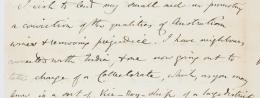 I wish to lend my small aid in promoting
a conviction of the qualities of Australian
wines & removing prejudice. I have neighbours
connected with India & one now going out to
take charge of a Collectorate, which as you may
know is a sort of Vice-Roy-ship of a large district